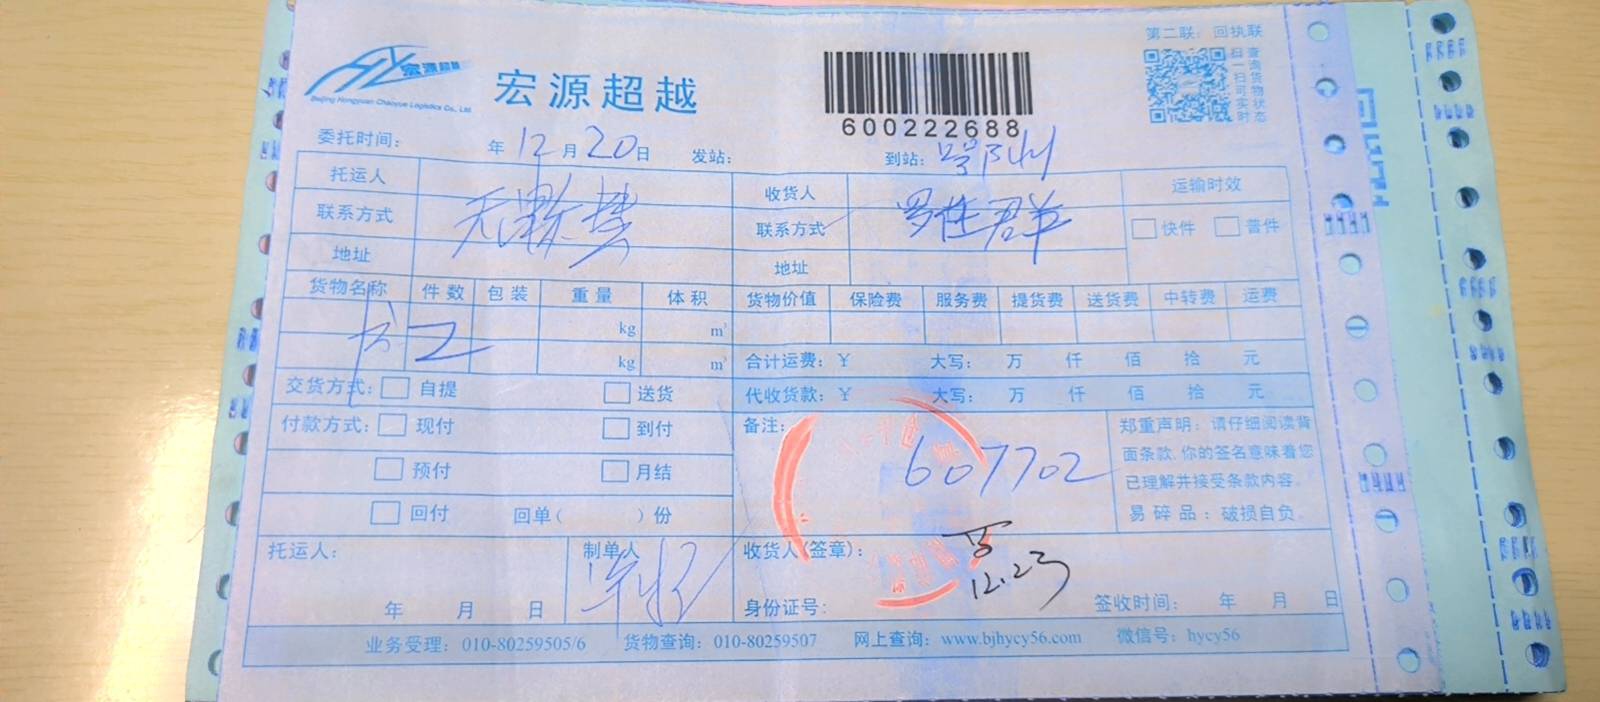 第二联：回执联
宏源超越
Beijing Hongyuan Chaoyue Logistics Co., Ltd.
宏源超越
600222688
扫一扫可实时
查询货物状态
委托时间： 年 12 月 20 日 发站： 到站： 州
托运人 收货人 运输时效
联系方式 联系方式 快件 普件
地址 地址
货物名称 件数 包装 重量 体积 货物价值 保险费 服务费 提货费 送货费 中转费 运费
kg m³
2
kg m³ 合计运费：￥ 大写： 万 仟 佰 拾 元
交货方式： 自提 送货 代收货款：￥ 大写： 万 仟 佰 拾 元
付款方式： 现付 到付 备注：
预付 月结
607702
回付 回单（ ）份
郑重声明：请仔细阅读背
面条款，你的签名意味着您
已理解并接受条款内容。
易碎品：破损自负。
托运人： 制单人 收货人（签章）：
12.23
年 月 日 身份证号： 签收时间： 年 月 日
业务受理：010-80259505/6 货物查询：010-80259507 网上查询：www.bjhycy56.com 微信号：hycy56